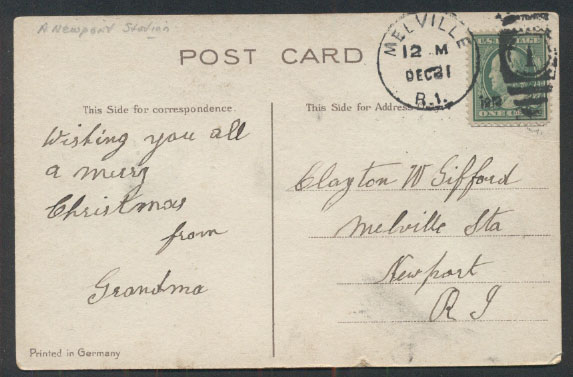 A Newport Station
POST CARD
MELVILLE
12 M
DEC 21
R.I.
1912
1
U.S. POSTAGE
ONE CENT
This Side for correspondence.
This Side for Address
Wishing you all
a merry
Christmas
from
Grandma
Clayton W Gifford
Melville Sta
Newport
R I
Printed in Germany